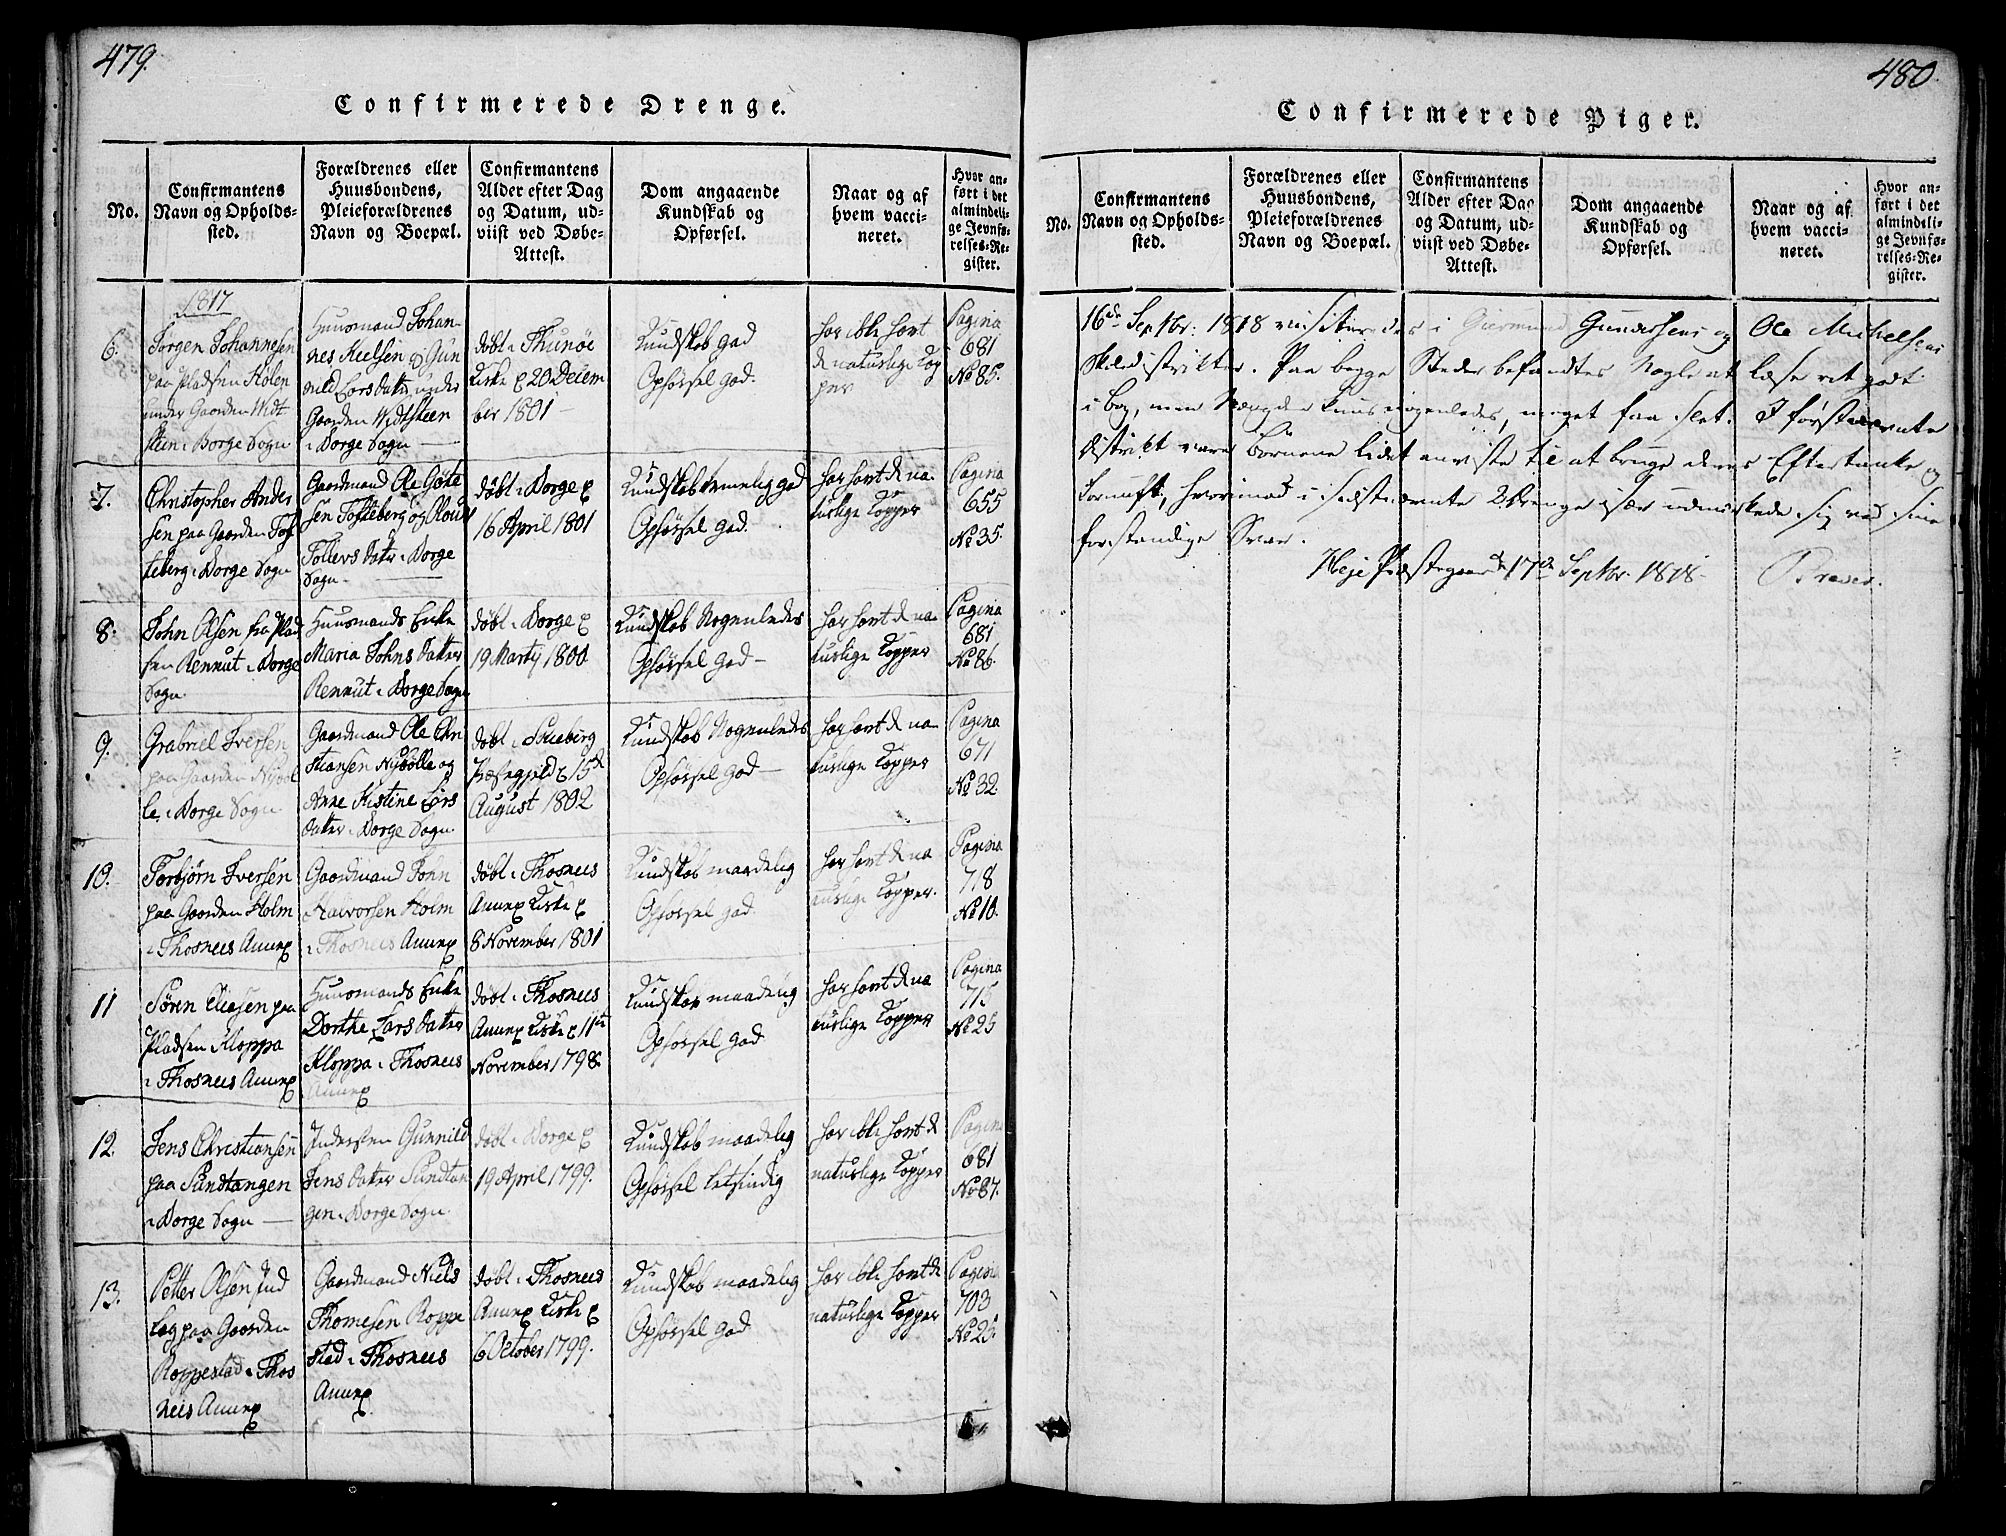 479.
Confirmerede Drenge.
No.
Confirmantens
Navn og Opholds-
sted.
Forældrenes eller
Huusbondens,
Pleieforældrenes
Navn og Boepæl.
Confirmantens
Alder efter Dag
og Datum, ud-
viist ved Døbe-
Attest.
Dom angaaende
Kundskab og
Opførsel.
Naar og af
hvem vacci-
neret.
Hvor an-
ført i det
almindeli-
ge Jevnfø-
relses-Re-
gister.
1817
6.
Jørgen Johannesen
paa Pladsen Holen
under Gaarden Vidt
steen i Borge Sogn
Huusmand Johan-
nes Neelsen og Gun
nild Lars Datter under
Gaarden Vidtsteen
i Borge Sogn
døbt i Thunøe
Kirke d 20 Decem
ber 1801
Kundskab god
Opførsel god.
har ikke havt
de naturlige Kop
per
Pagina
681
No 85.
7.
Christopher Ander
sen paa Gaarden Tof
teberg i Borge Sogn
Gaardmand Ole Gøte
sen Tofteberg og Olou
Tollevs Datter i Borge
Sogn
døbt i Borge d
16 April 1801
Kundskab temmelig god
Opførsel god.
har havt de na-
turlige Kopper
Pagina
655
No 35.
8.
John Olsen fra Plad
sen Rennut i Borge
Sogn
Huusmands Enke
Maria Johns Datter
Rennut i Borge Sogn
døbt i Borge d
19 Martij 1800
Kundskab Nogenledes
Opførsel god
har havt de na-
turlige Kopper
Pagina
681
No 86.
9.
Grabriel Iversen
paa Gaarden Nyböl
le i Borge Sogn
Gaardmand Ole Chri
stiansen Nybölle og
Anne Kistine Lars
Datter i Borge Sogn
døbt i Skieberg
Præstegjeld d 15de
August 1802
Kundskab Nogenledes
Opførsel god
har havt de na-
turlige Kopper
Pagina
671
No 32.
10.
Torbjørn Iversen
paa Gaarden Holm
i Thosnees Annex
Gaardmand John
Halvorsen Holm
i Thosnees Annex
døbt i Thosnees
Annex Kirke d
8 November 1801
Kundskab maadelig
Opførsel god
har havt de na
turlige Kopper.
Pagina
718
No 10.
11
Søren Eliasen paa
Pladsen Kloppa
i Thosnees Annex
Huusmands Enke
Dorthe Lars Datter
Kloppa i Thosnees
Annex
døbt i Thosnees
Annex Kirke d 11te
November 1798
Kundskab maadelig
Opførsel god
har havt de na
turlige Kopper
Pagina
715
No 25
12.
Jens Christiansen
paa Sundtangen
i Borge Sogn
Indersten Gunnild
Jens Datter Sundtan
gen i Borge Sogn
døbt i Borge d
19 April 1799.
Kundskab maadelig
Opførsel letsindig
har ikke havt de
naturlige Kopper
Pagina
681
No 87.
13.
Petter Olsen Ind
log paa Gaarden
Roppestad i Thos
nees Annex
Gaardmand Niels
Thomesen Roppe
stad i Thosnees
Annex
døbt i Thosnees
Annex Kirke d
6 October 1799.
Kundskab maadelig
Opførsel god
har ikke havt de
naturlige Kopper
Pagina
703
No 25
480.
Confirmerede Piger.
No.
Confirmantens
Navn og Opholds-
sted.
Forældrenes eller
Huusbondens,
Pleieforældrenes
Navn og Boepæl.
Confirmantens
Alder efter Dag
og Datum, ud-
viist ved Døbe-
Attest.
Dom angaaende
Kundskab og
Opførsel.
Naar og af
hvem vacci-
neret.
Hvor an-
ført i det
almindeli-
ge Jevnfø-
relses-Re-
gister.
16de Septbr: 1818 visiteredes i Giermund Gundersens og Ole Michelsens
Skoledistrikter. Paa begge Steder befandtes Nogle at læse ret godt
i Bog, men Mængden kuns nogenledes, meget faa slet. I førstnævnte
District vare Børnene lidet anviste til at bruge deres Eftertanke og
Fornuft, hvorimod i sidstnævnte 2 Drenge især udmærkede sig ved sine
forstandige Svar.
Præstegaard 17de Septbr. 1818.